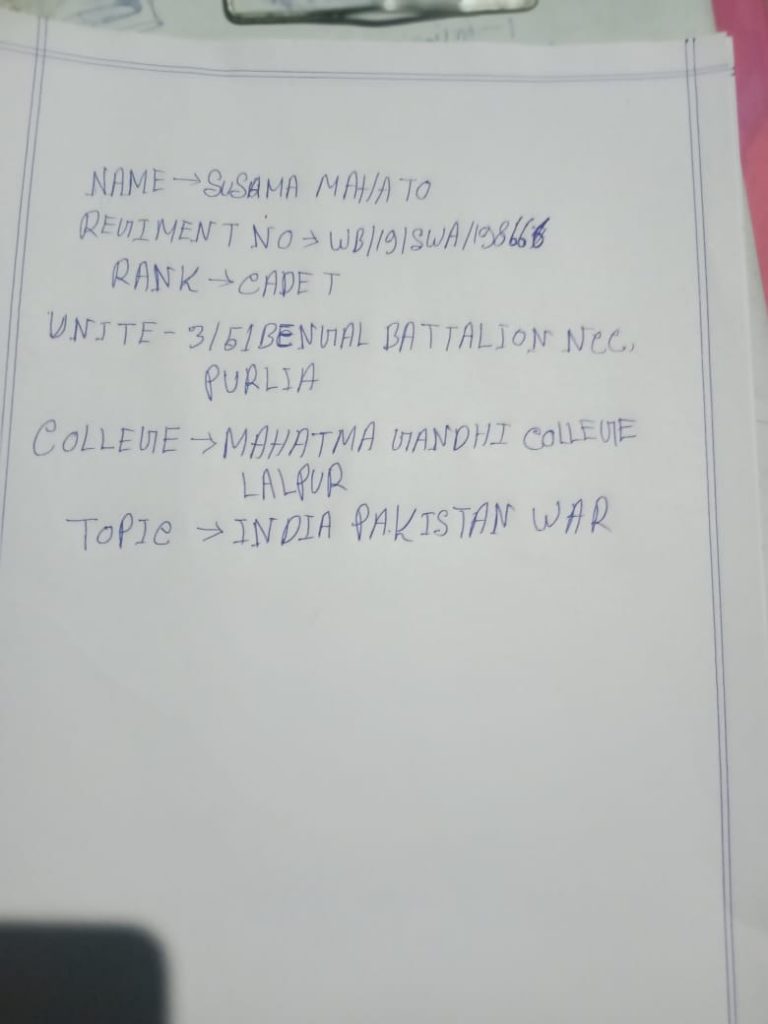 NAME → SUSAMA MAHATO
REGIMENT NO → WB/19/SWA/198666
RANK → CADET
UNITE - 3/51 BENGAL BATTALION NCC,
PURLIA
COLLEGE → MAHATMA GANDHI COLLEGE
LALPUR
TOPIC → INDIA PAKISTAN WAR